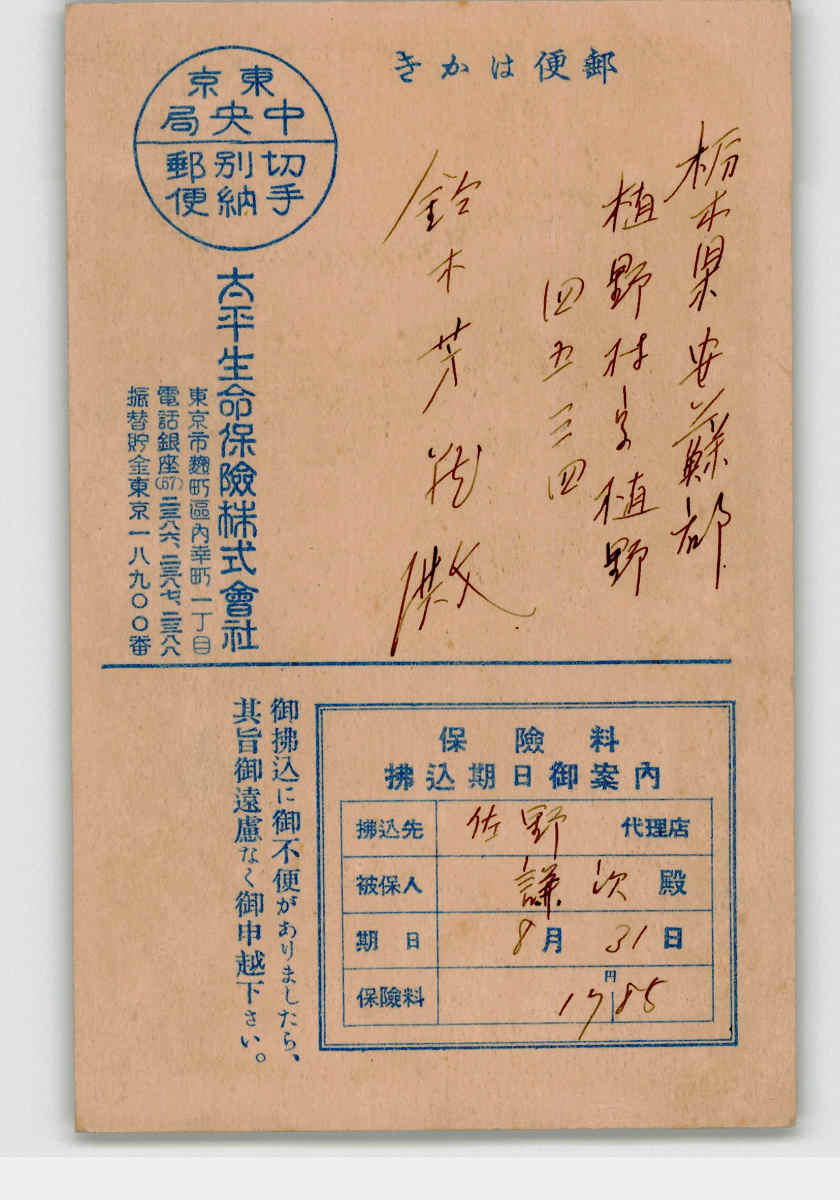 郵便はかき
東京
中央局
切手
別納
郵便
栃木県安蘇郡
植野村字植野
四五三四
鈴木芳
殿
太平生命保險株式會社
東京市麴町區內幸町一丁目
電話銀座(57)二三八六、二三八七、二三八八
振替貯金東京一八九〇〇番
保險料
拂込期日御案內
拂込先 佐野 代理店
被保人 謙次 殿
期日 8月31日
保險料 円 17 85
御拂込に御不便がありましたら、
其旨御遠慮なく御申越下さい。